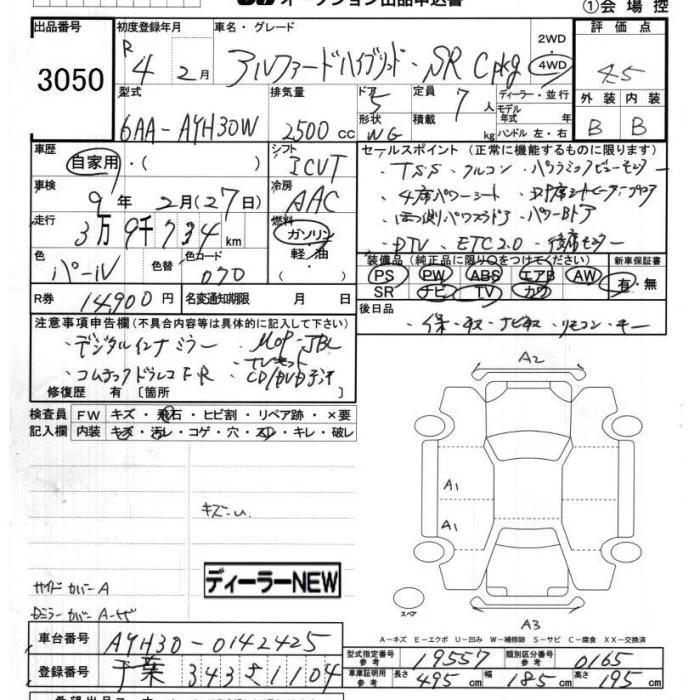 オークション出品申込書
①会場控
出品番号 3050
初度登録年月 R 4 2月
車名・グレード アルファードハイブリッド・SR Cpkg
2WD 4WD
評価点 4.5
型式 6AA-AYH30W
排気量 2500cc
ドア 5 形状 WG
定員 7人 積載 kg
ディーラー・並行
モデル年式 年式
ハンドル 左・右
外装 内装
B B
車歴 自家用・( )
シフト ICVT
セールスポイント (正常に機能するものに限ります)
・TSS ・フルコン ・パノラミックビューモニター
車検 9年 2月(27日)
冷房 AAC
・4席パワーシート
・両側パワスラドア ・パワーBドア
走行 3万9千734km
燃料 ガソリン 軽油
・DTV ・ETC2.0 ・後席モニター
色 パール 色替 色コード 070
装備品 (純正品に限り○をつけてください) 新車保証書
PS PW ABS エアB AW
SR ナビ TV カワ
有・無
R券 14,900円 名変通知期限 月 日
後日品 ・保・取・ナビ取・リモコン・キー
注意事項申告欄(不具合内容等は具体的に記入して下さい)
・デジタルインナミラー ・MOP-JBL
・コムテックドラレコF・R ・CD/DVDデッキ
修復歴 有 [箇所 ]
検査員 FW キズ・飛石・ヒビ割・リペア跡・×要
記入欄 内装 キズ・汚レ・コゲ・穴・スレ・キレ・破レ
A2
A1
キズ・凹
A1
ディーラーNEW
サイドカバーA
Dミラーカバー A-
スペア
A3
A-キズ E-エクボ U-凹み W-補修跡 S-サビ C-腐食 XX-交換済
車台番号 AYH30-0142425
登録番号 千葉 343 さ 1104
型式指定番号 参考 19557 類別区分番号 参考 0165
車庫証明用 参考 長さ 495cm 幅 185cm 高さ 195cm